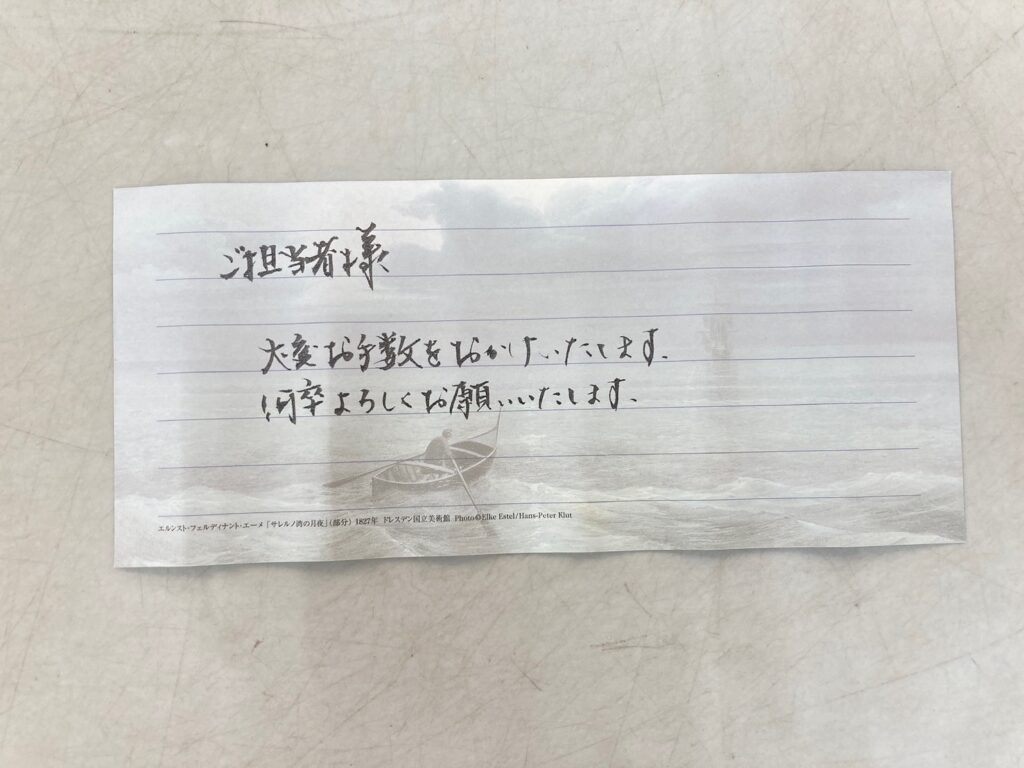 ご担当者様
大変お手数をおかけいたします。
何卒よろしくお願いいたします。
エルンスト・フェルディナント・エーメ「サレルノ湾の月夜」（部分） 1827年 ドレスデン国立美術館 Photo©Elke Estel/Hans-Peter Klut